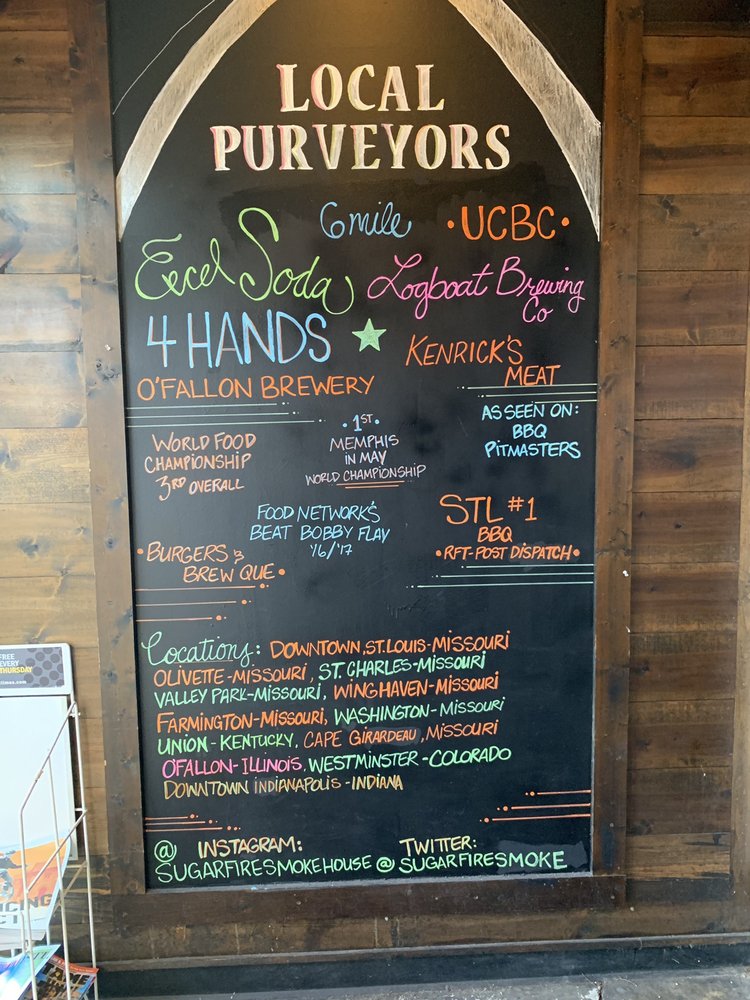 LOCAL
PURVEYORS
6 mile
• UCBC •
Excel Soda
Logboat Brewing
Co
4 HANDS
KENRICK'S
MEAT
O'FALLON BREWERY
WORLD FOOD
CHAMPIONSHIP
3RD OVERALL
• 1ST •
MEMPHIS
IN MAY
WORLD CHAMPIONSHIP
AS SEEN ON:
BBQ
PITMASTERS
FOOD NETWORK'S
BEAT BOBBY FLAY
'16/'17
STL #1
BBQ
• RFT-POST DISPATCH •
• BURGERS &
BREW QUE •
Locations: DOWNTOWN, ST. LOUIS - MISSOURI
OLIVETTE - MISSOURI, ST. CHARLES - MISSOURI
VALLEY PARK - MISSOURI, WINGHAVEN - MISSOURI
FARMINGTON - MISSOURI, WASHINGTON - MISSOURI
UNION - KENTUCKY, CAPE GIRARDEAU, MISSOURI
OFALLON - ILLINOIS, WESTMINSTER - COLORADO
DOWNTOWN INDIANAPOLIS - INDIANA
@ INSTAGRAM:
SUGARFIRESMOKEHOUSE
TWITTER:
@ SUGARFIRESMOKE
FREE
EVERY
THURSDAY